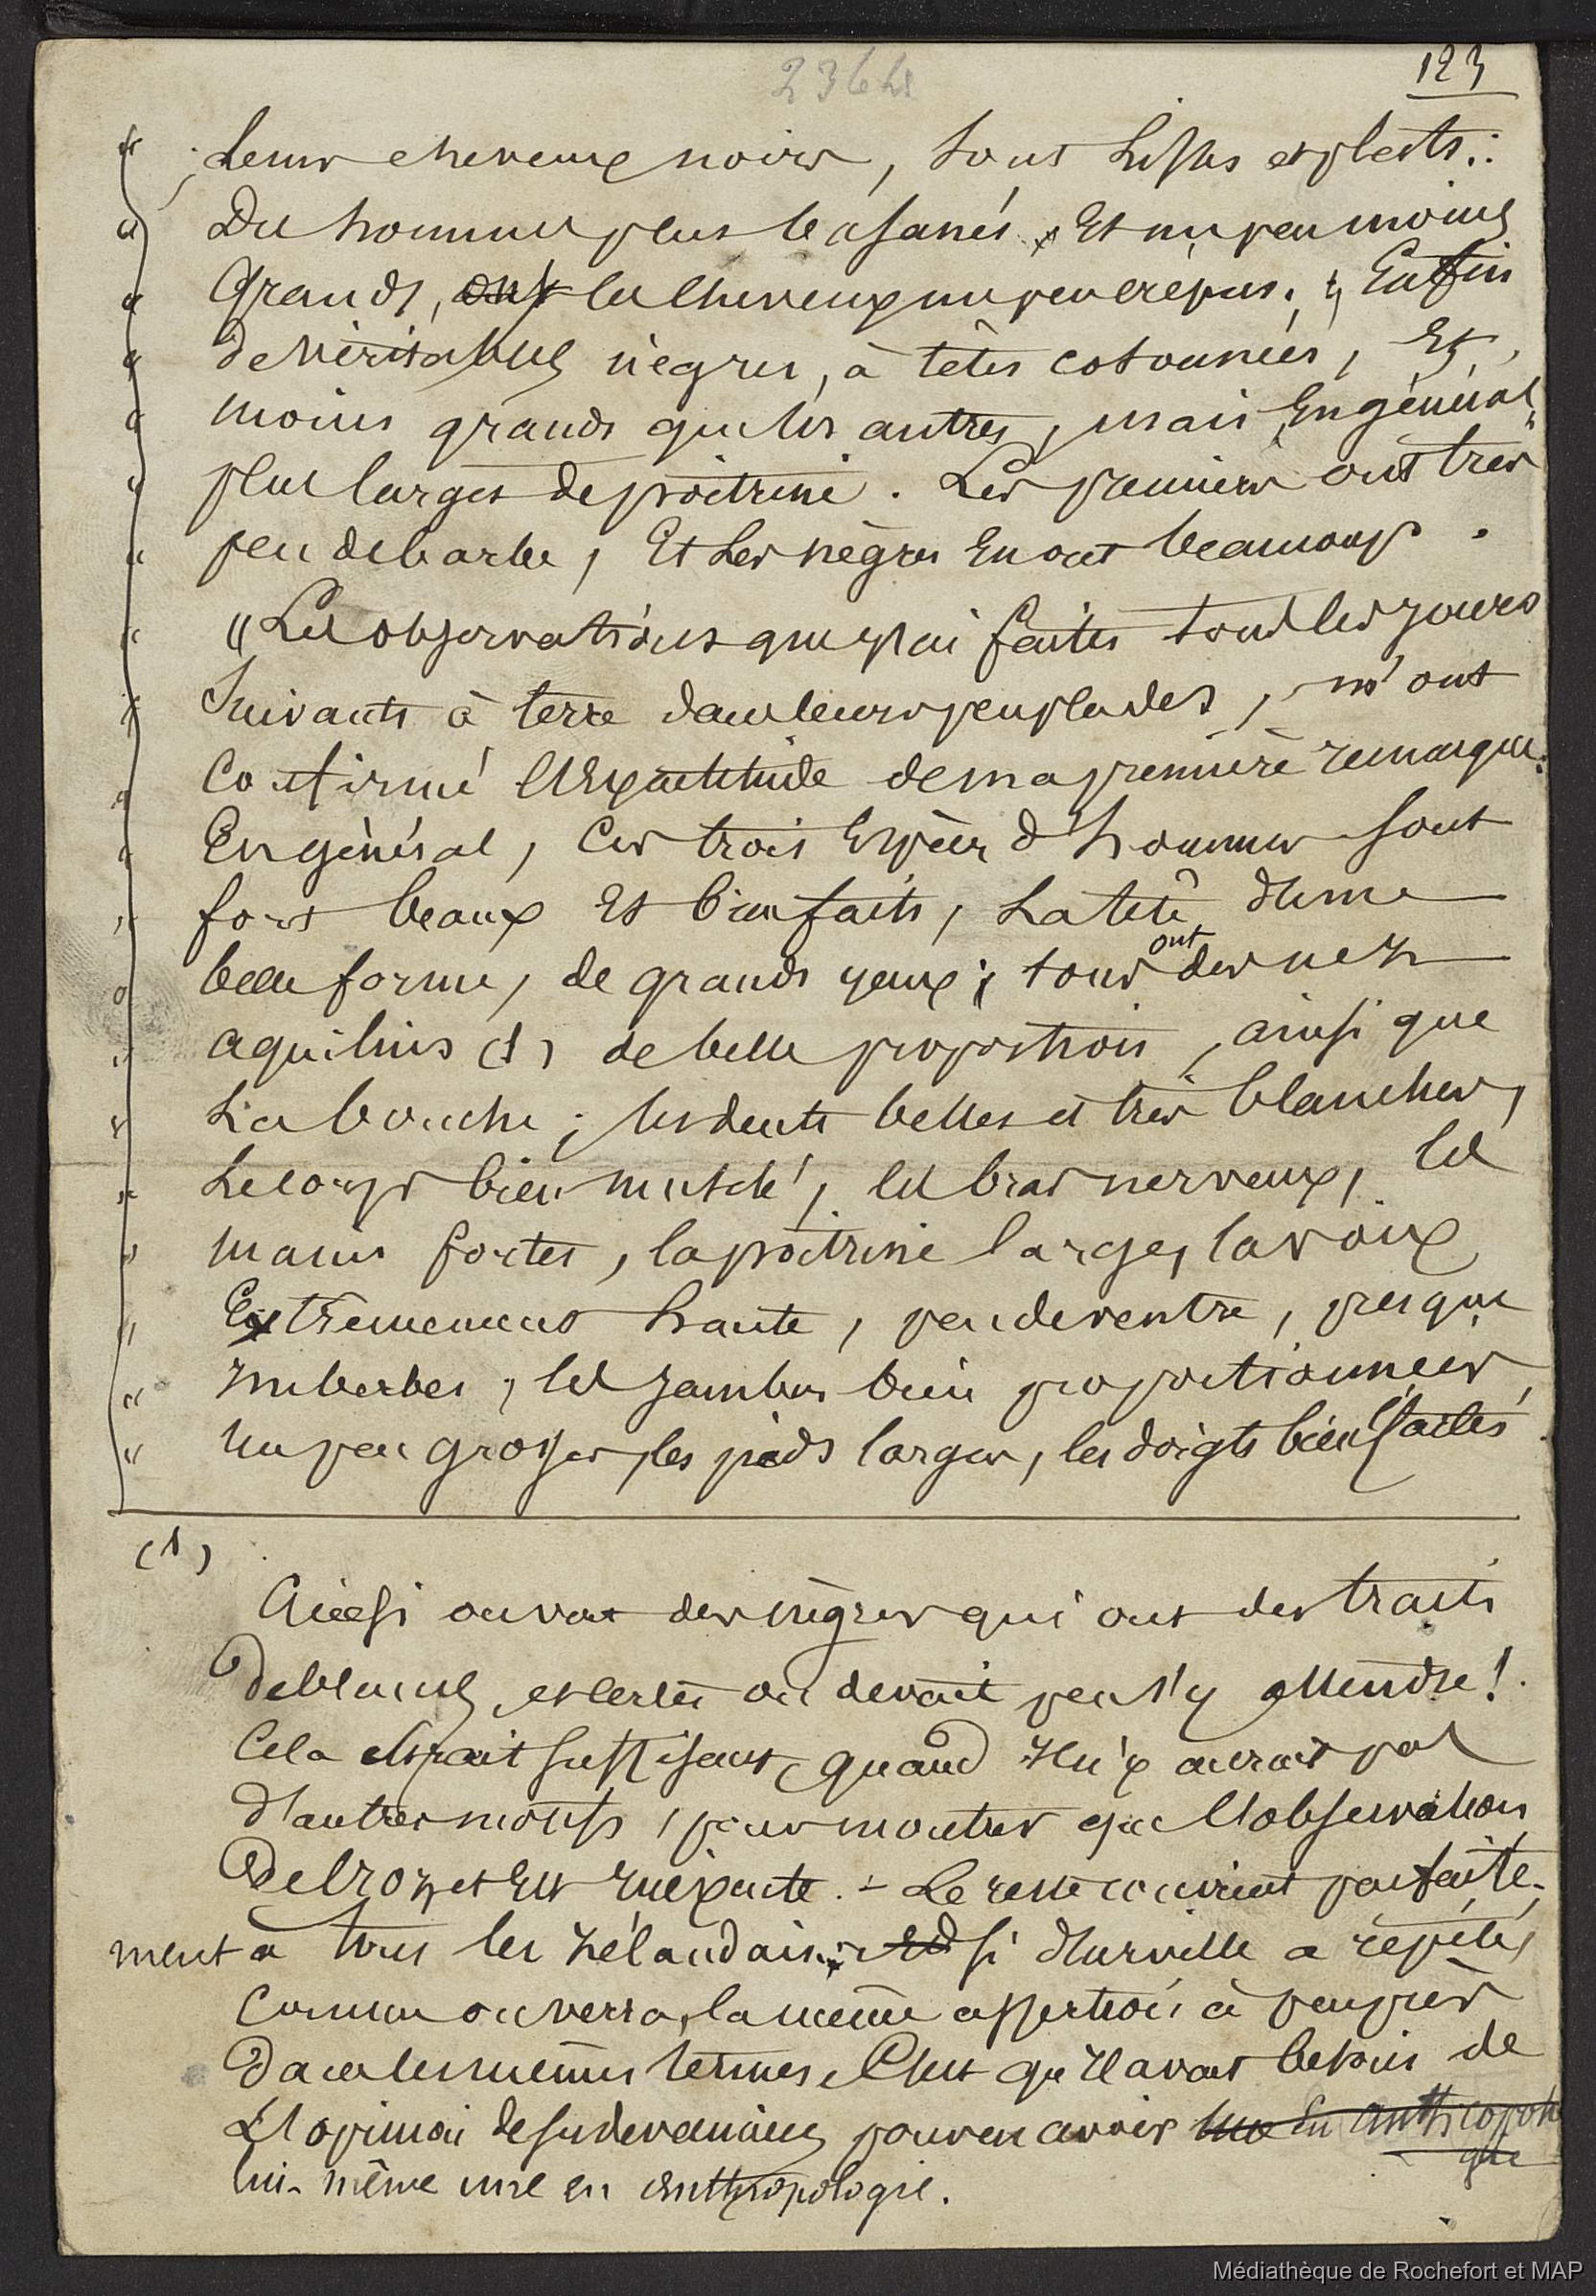 123
leurs cheveux noirs, sont lisses et plats;
Des hommes plus basanés, Et un peu moins
Grands, ont les cheveux un peu crépus; Enfin
de véritables nègres, à têtes cotonnées, Et,
moins grands que les autres, mais En général,
plus larges de poitrine. Les premiers ont très
peu de barbe, Et Les nègres En ont beaucoup.
"Les observations que j'ai faites tous les jours
Suivants à terre dans leurs peuplades, m'ont
Confirmé l'Exactitude de ma première remarque:
En général, Ces trois Espèces d'hommes sont
fort beaux Et bien faits, La tête d'une
belle forme, de grands yeux; tous ont des nez
aquilins (1) de belle proportion, ainsi que
La bouche; les dents belles et très blanches,
Le corps bien musclé, les bras nerveux, les
mains fortes, la poitrine large, la voix
Extrêmement haute, peu de ventre, presque
Imberbes; les Jambes bien proportionnées,
un peu grosses, les pieds larges, les doigts bien faits
(1)
Ainsi on voit des nègres qui ont des traits
De blancs, et certes on devait peu s'y attendre!
Cela serait suffisant, quand Il n'y aurait pas
d'autres motifs, pour montrer que l'observation
De Crozet Est Inexacte. - Le reste convient parfaite-
ment à tous les Zélandais; Et si d'Urville a répété,
Comme on verra, la même assertion à peu près
Dans les mêmes termes, C'est qu'Il avait besoin de
L'opinion de ses devanciers pour en avoir une En anthropolo
gie
lui-même une en anthropologie.
Médiathèque de Rochefort et MAP